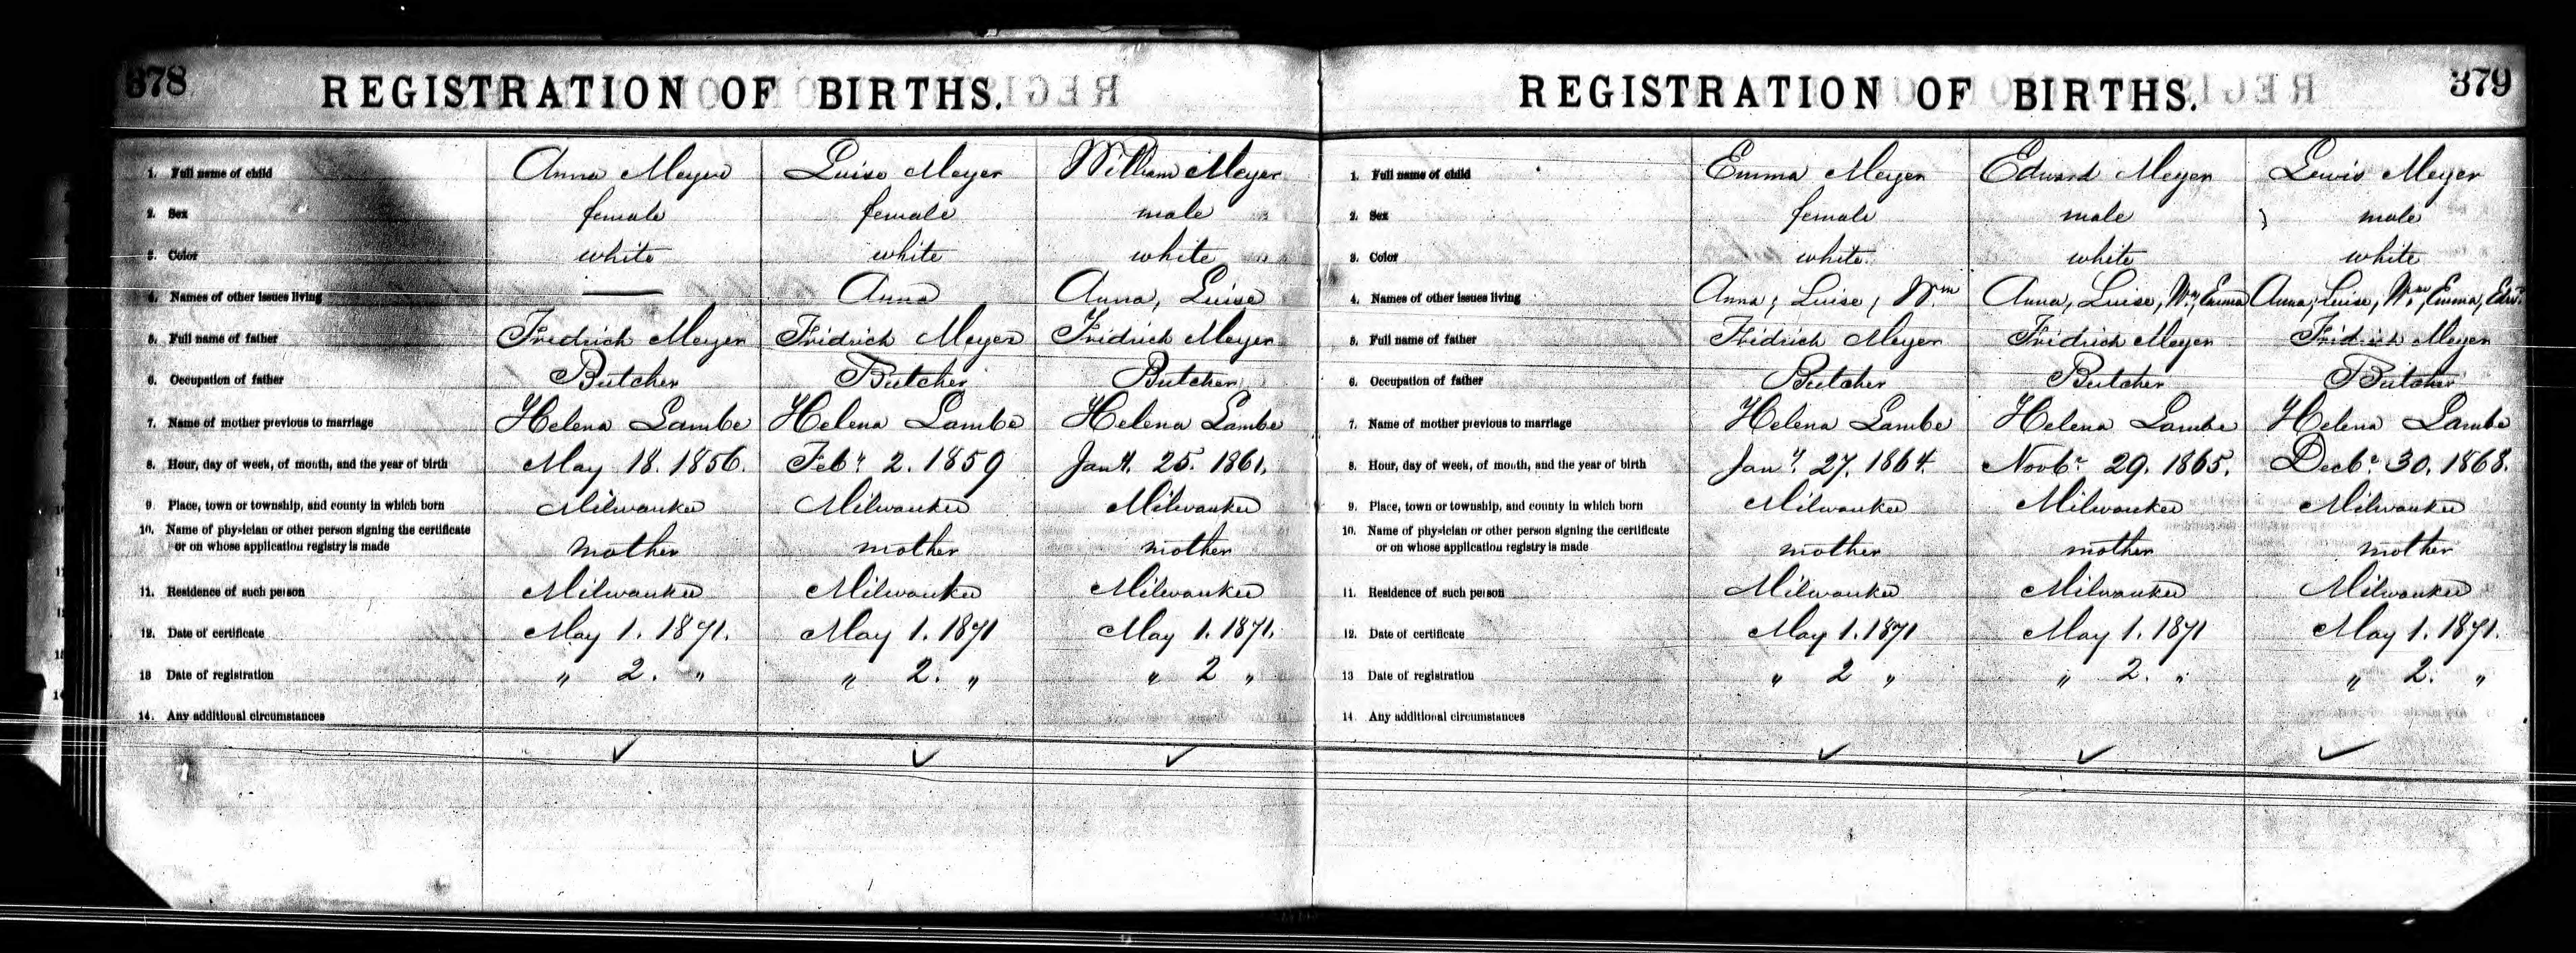 378
REGISTRATION OF BIRTHS.
1. Full name of child Anna Meyer Luise Meyer William Meyer
2. Sex female female male
3. Color white white white
4. Names of other issues living — Anna Anna, Luise
5. Full name of father Fredrich Meyer Fridrich Meyer Fridrich Meyer
6. Occupation of father Butcher Butcher Butcher
7. Name of mother previous to marriage Helena Lambe Helena Lambe Helena Lambe
8. Hour, day of week, of month, and the year of birth May 18. 1856. Febr. 2. 1859 Jany. 25. 1861.
9. Place, town or township, and county in which born Milwaukee Milwaukee Milwaukee
10. Name of physician or other person signing the certificate
or on whose application registry is made mother mother mother
11. Residence of such person Milwaukee Milwaukee Milwaukee
12. Date of certificate May 1. 1871. May 1. 1871 May 1. 1871.
13 Date of registration " 2. " " 2. " " 2 "
14. Any additional circumstances
✓ ✓ ✓
379
REGISTRATION OF BIRTHS.
1. Full name of child Emma Meyer Edward Meyer Lewis Meyer
2. Sex female male male
3. Color white white white
4. Names of other issues living Anna, Luise, Wm Anna, Luise, Wm, Emma Anna, Luise, Wm, Emma, Edw.
5. Full name of father Fridrich Meyer Fridrich Meyer Fridrich Meyer
6. Occupation of father Butcher Butcher Butcher
7. Name of mother previous to marriage Helena Lambe Helena Lambe Helena Lambe
8. Hour, day of week, of month, and the year of birth Jany. 27. 1864. Novbr. 29. 1865. Decbr. 30. 1868.
9. Place, town or township, and county in which born Milwaukee Milwaukee Milwaukee
10. Name of physician or other person signing the certificate
or on whose application registry is made mother mother mother
11. Residence of such person Milwaukee Milwaukee Milwaukee
12. Date of certificate May 1. 1871 May 1. 1871 May 1. 1871.
13 Date of registration " 2 " " 2. " " 2. "
14 Any additional circumstances
✓ ✓ ✓